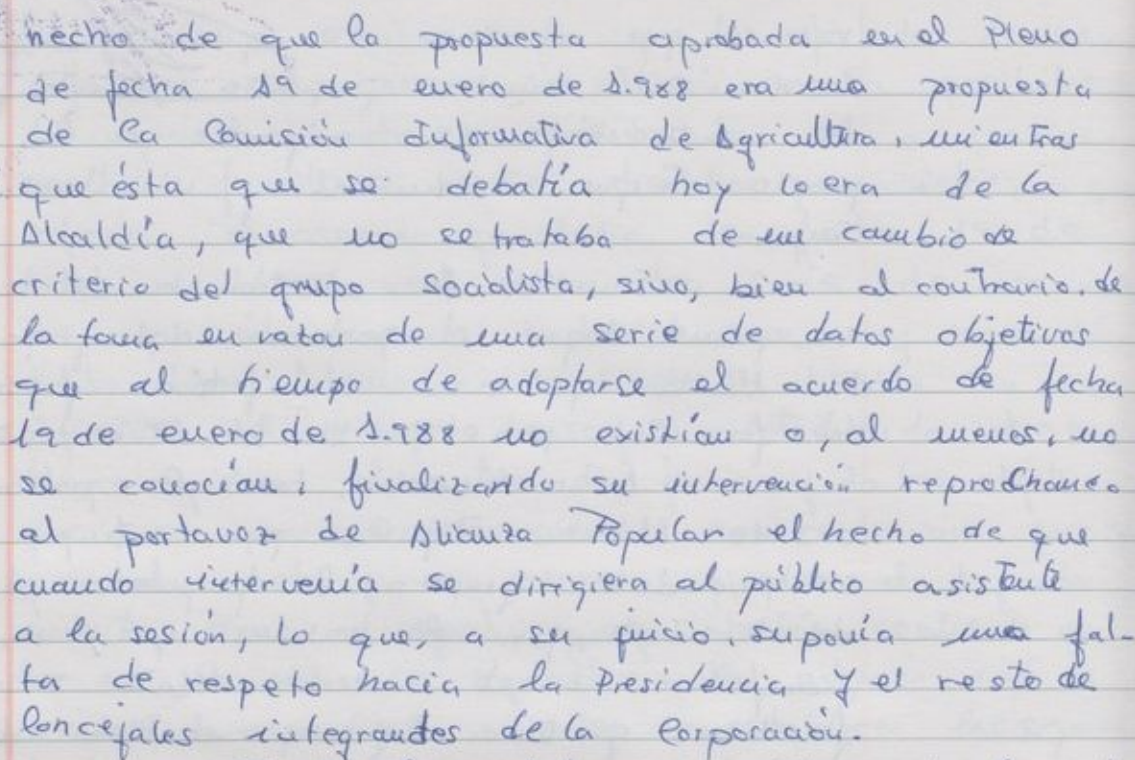 hecho de que la propuesta aprobada en el Pleno
de fecha 19 de enero de 1.988 era una propuesta
de la Comisión Informativa de Agricultura, mientras
que ésta que se debatía hoy lo era de la
Alcaldía, que no se trataba de un cambio de
criterio del grupo socialista, sino, bien al contrario, de
la toma en razon de una serie de datos objetivos
que al tiempo de adoptarse el acuerdo de fecha
19 de enero de 1.988 no existían o, al menos, no
se conocían; finalizando su intervención reprochando
al portavoz de Alianza Popular el hecho de que
cuando intervenía se dirigiera al público asistente
a la sesión, lo que, a su juicio, suponía una fal-
ta de respeto hacia la Presidencia y el resto de
Concejales integrantes de la Corporación.